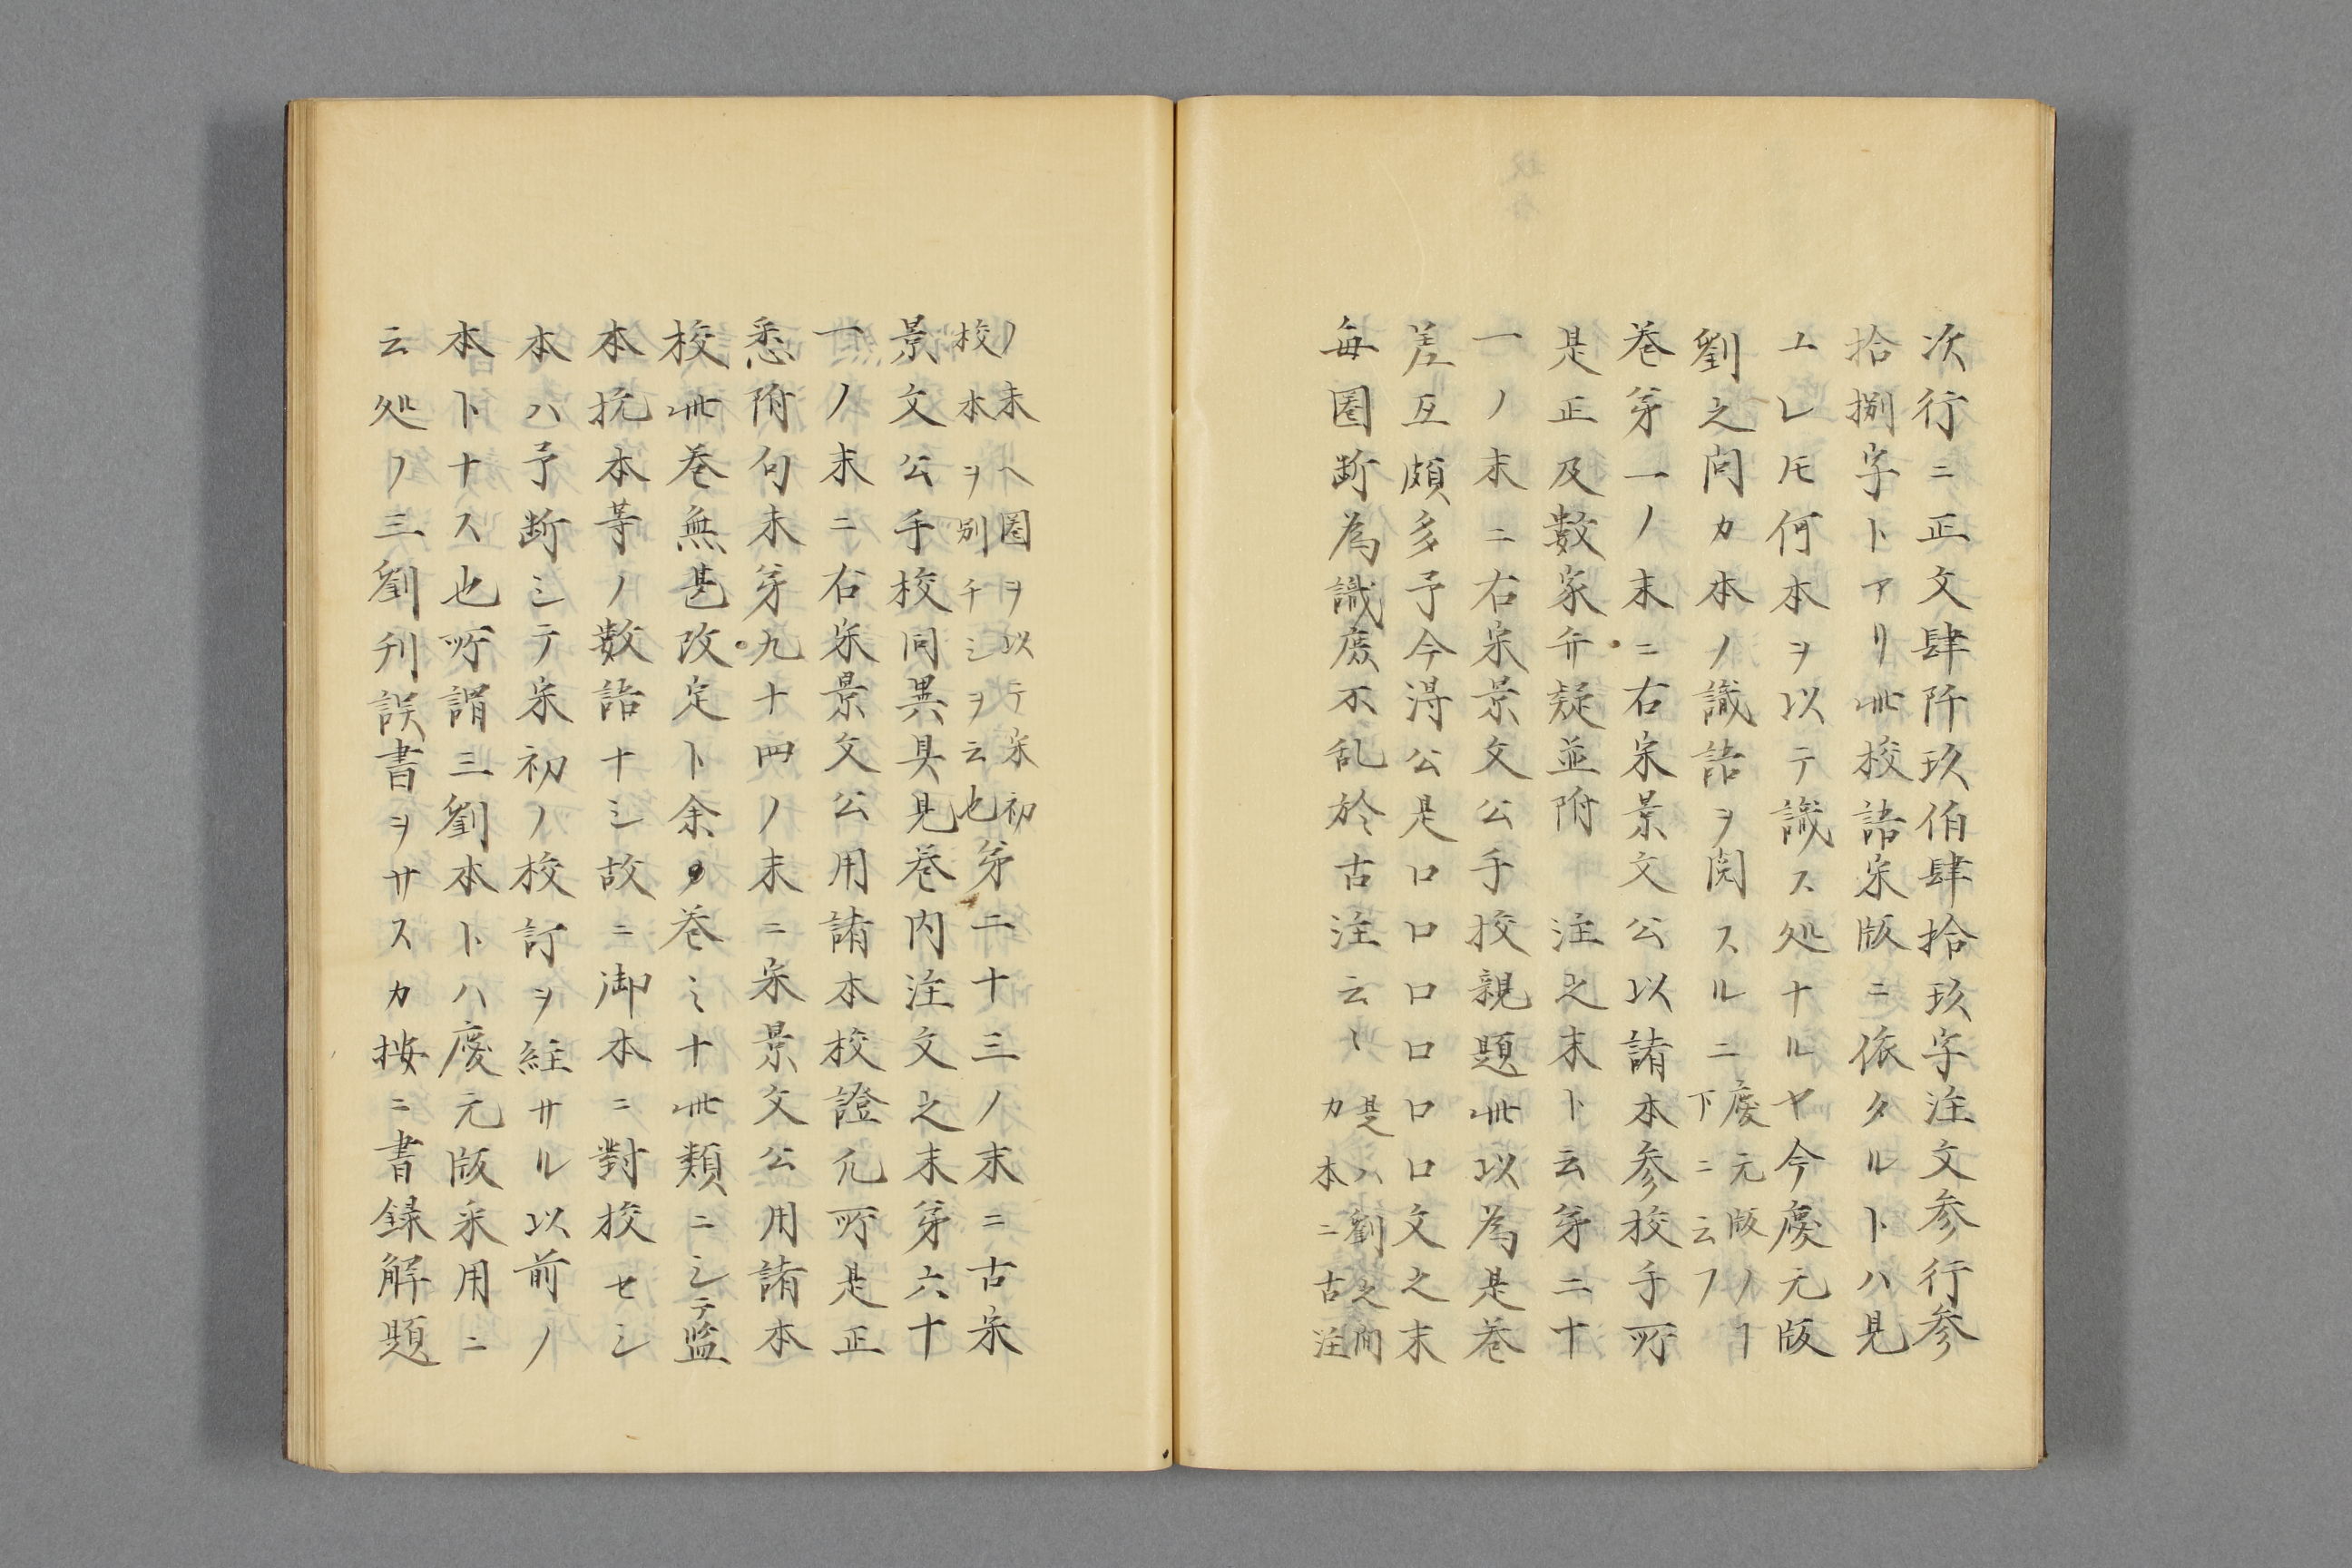 次行ニ正文肆阡玖伯肆拾玖字注文参行参
拾捌字トアリ此校語宋版ニ依タルトハ見
ユレ𪜈何本ヲ以テ識ス処ナルヤ今慶元版
劉之問カ本ノ識語ヲ閲スルニ慶元版ノヿ
下ニ云フ
巻第一ノ末ニ右宋景文公以諸本参校手所
是正及数家弁疑並附 注之末ト云第二十
一ノ末ニ右宋景文公手校親題此以為是巻
差互頗多予今得公是口口口口口口文之末
毎圏断為識庶不乱於古注云〻是ハ劉之問
カ本ニ古注
ノ末ヘ圏ヲ以テ宋初
校本ヲ別チシヲ云也第二十三ノ末ニ古宋
景文公手校同異具見巻内注文之末第六十
一ノ末ニ右宋景文公用諸本校證凡所是正
悉附句末第九十四ノ末ニ宋景文公用諸本
校此巻無甚改定ト余ノ巻〻十此類ニシテ監
本抗本等ノ数語ナシ故ニ御本ニ對校セシ
本ハ予断シテ宋初ノ校訂ヲ経サル以前ノ
本トナス也所謂三劉本トハ慶元版采用ニ
云処ノ三劉刊誤書ヲサスカ按ニ書録解題